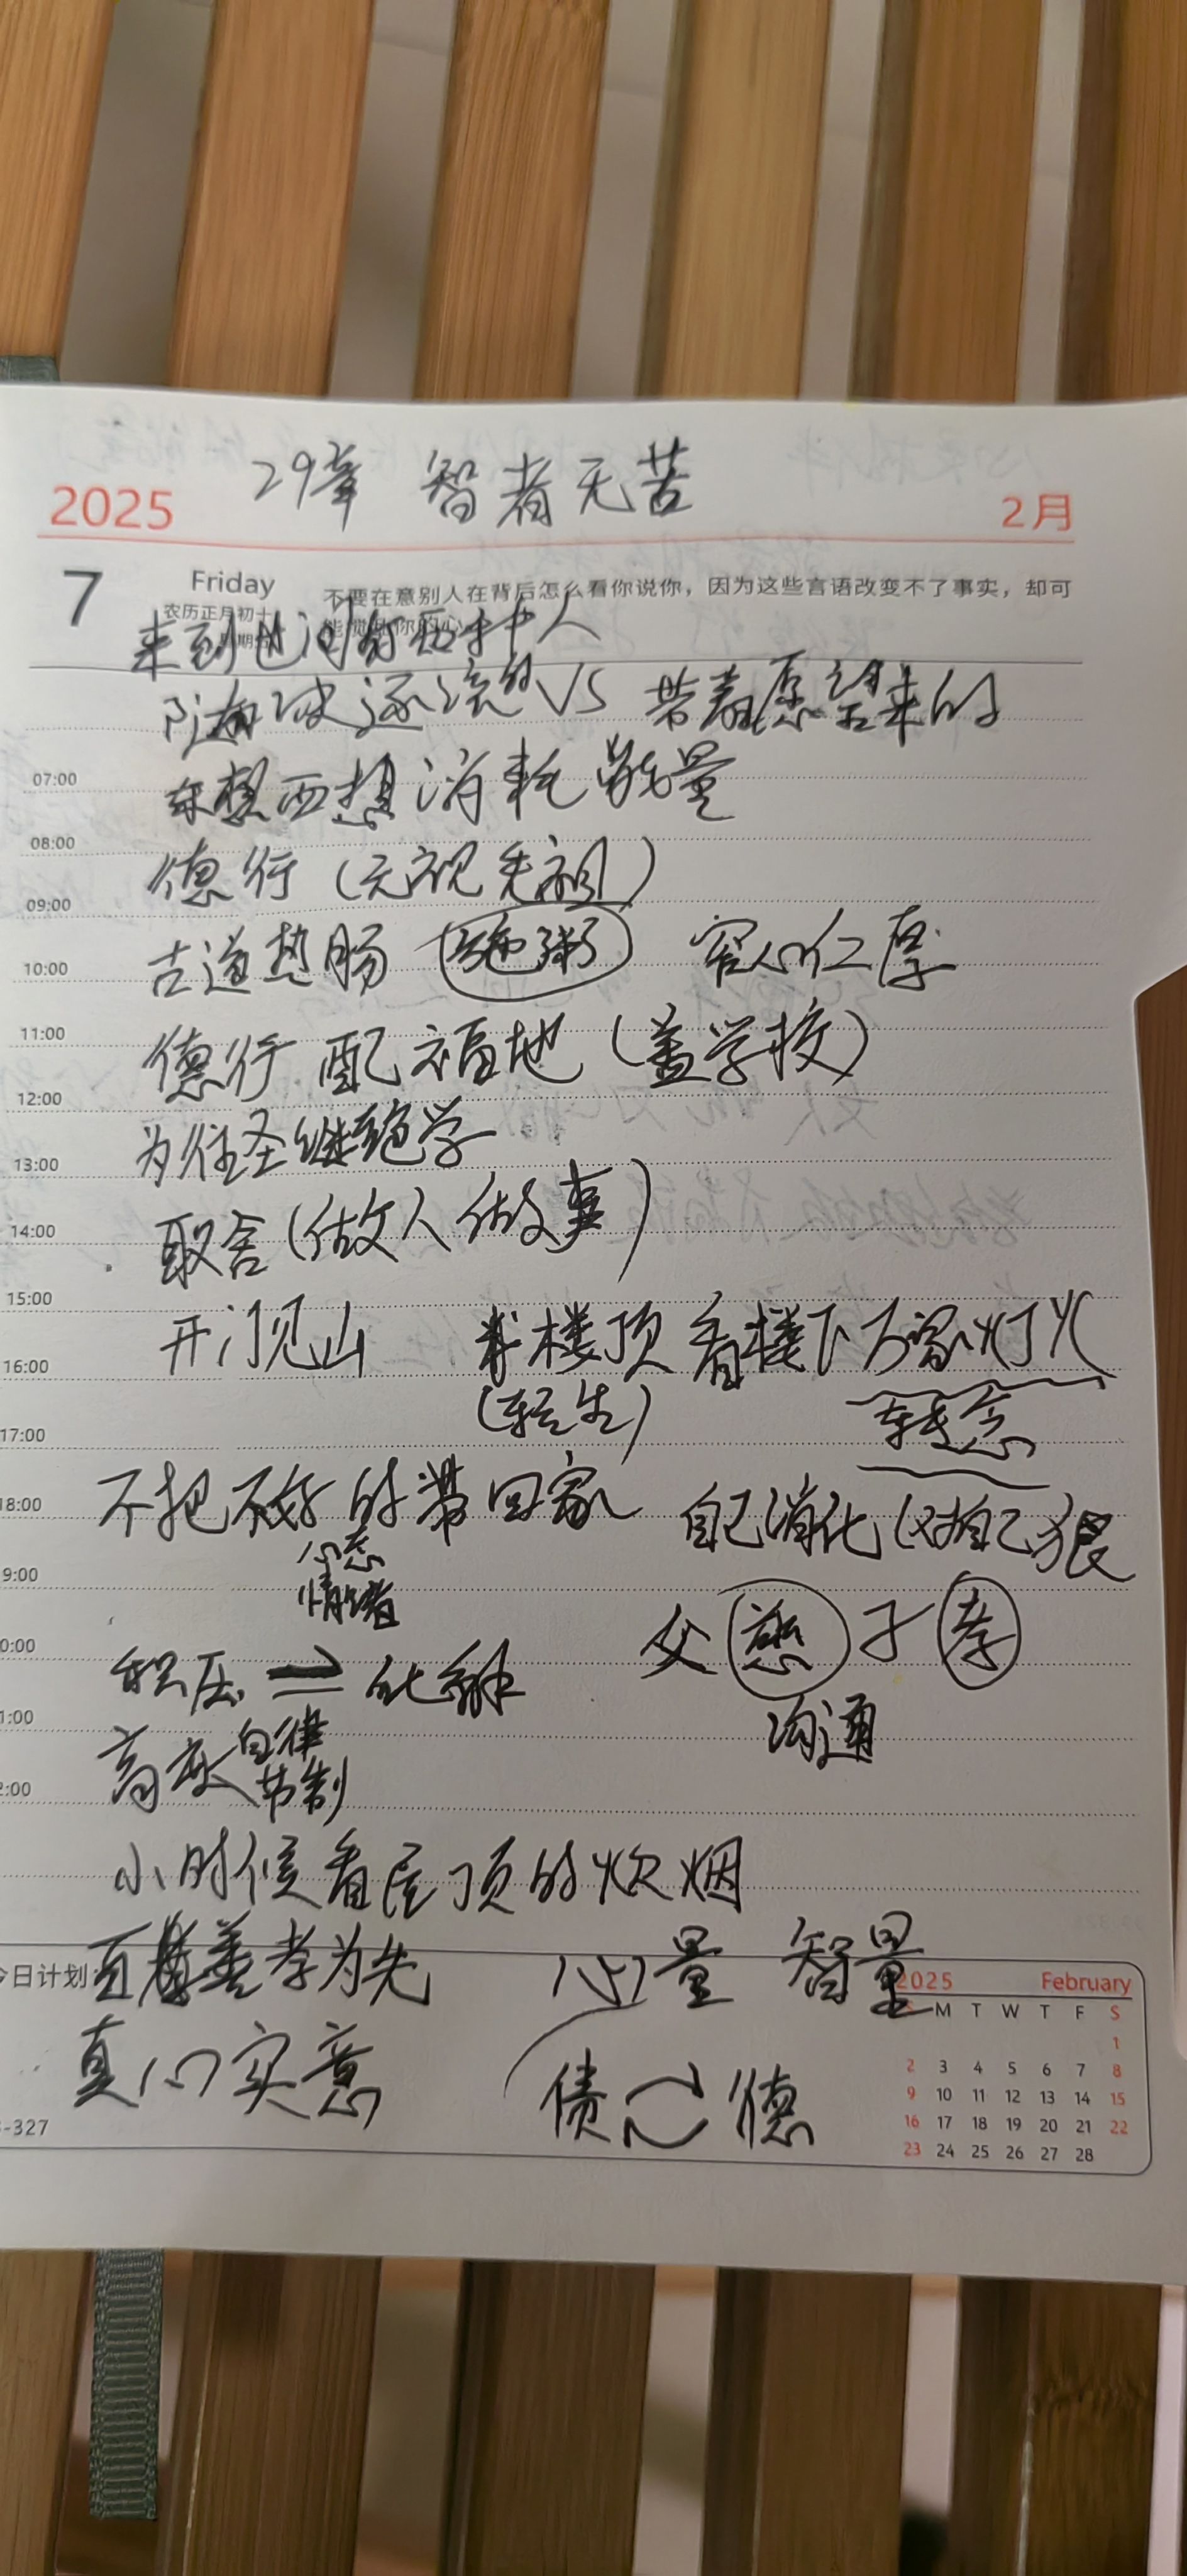 29章 智者无苦
2025 2月
7 Friday 不要在意别人在背后怎么看你说你，因为这些言语改变不了事实，却可
农历正月初十
来到世间有两种人
随波逐流的 VS 带着愿望来的
07:00 东想西想 消耗能量
08:00
德行（无视先祖）
09:00
古道热肠 施粥 宅心仁厚
10:00
11:00
德行 配福地（盖学校）
12:00
为往圣继绝学
13:00
14:00 取舍（做人做事）
15:00
开门见山 楼顶看楼下万家灯火
16:00
（轻生） 转念
17:00
不把不好的带回家 自己消化 对自己狠
18:00
心态
情绪
9:00
父慈子孝
0:00
积压 化解
沟通
1:00
高度自律
节制
2:00
小时候看屋顶的炊烟
今日计划 百善孝为先 心量 智量
真心实意 债 德
2025 February
M T W T F S
1
2 3 4 5 6 7 8
9 10 11 12 13 14 15
16 17 18 19 20 21 22
23 24 25 26 27 28
-327